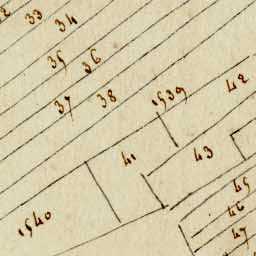 33
34
35
36
37
38
1539
42
41
43
45
46
47
1540